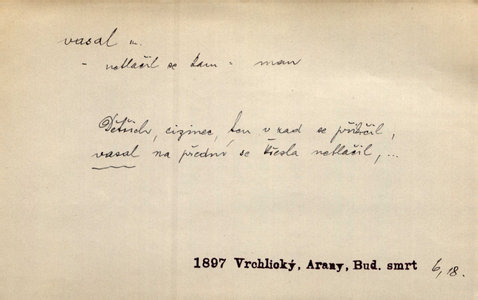 vasal m.
- netlačil se kam - man
Dětřich, cizinec, ten v zad se přikrčil,
vasal na přední se křesla netlačil, ...
1897 Vrchlický, Arany, Bud. smrt 6,18.